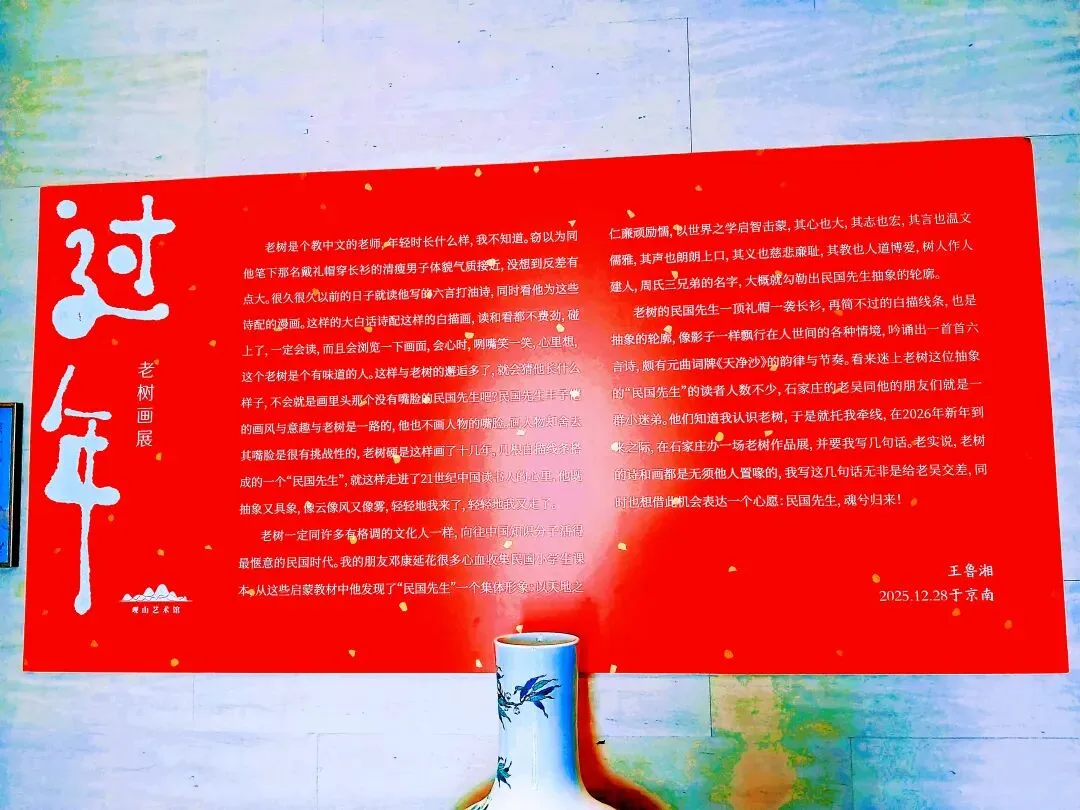 过年
老树画展
观山艺术馆
老树是个教中文的老师,年轻时长什么样,我不知道。窃以为同
他笔下那名戴礼帽穿长衫的清瘦男子体貌气质接近,没想到反差有
点大。很久很久以前的日子就读他写的六言打油诗,同时看他为这些
诗配的漫画。这样的大白话诗配这样的白描画,读和看都不费劲,碰
上了,一定会读,而且会浏览一下画面,会心时,咧嘴笑一笑,心里想,
这个老树是个有味道的人。这样与老树的邂逅多了,就会猜他长什么
样子,不会就是画里头那个没有嘴脸的民国先生吧?民国先生丰子恺
的画风与意趣与老树是一路的,他也不画人物的嘴脸。画人物却舍去
其嘴脸是很有挑战性的,老树硬是这样画了十几年,几根白描线条搭
成的一个“民国先生”,就这样走进了21世纪中国读书人的心里。他既
抽象又具象,像云像风又像雾,轻轻地我来了,轻轻地我又走了。
老树一定同许多有格调的文化人一样,向往中国知识分子活得
最惬意的民国时代。我的朋友邓康延花很多心血收集民国小学生课
本,从这些启蒙教材中他发现了“民国先生”一个集体形象:以天地之
仁廉顽励懦,以世界之学启智击蒙,其心也大,其志也宏,其言也温文
儒雅,其声也朗朗上口,其义也慈悲廉耻,其教也人道博爱,树人作人
建人,周氏三兄弟的名字,大概就勾勒出民国先生抽象的轮廓。
老树的民国先生一顶礼帽一袭长衫,再简不过的白描线条,也是
抽象的轮廓,像影子一样飘行在人世间的各种情境,吟诵出一首首六
言诗,颇有元曲词牌《天净沙》的韵律与节奏。看来迷上老树这位抽象
的“民国先生”的读者人数不少,石家庄的老吴同他的朋友们就是一
群小迷弟。他们知道我认识老树,于是就托我牵线,在2026年新年到
来之际,在石家庄办一场老树作品展,并要我写几句话。老实说,老树
的诗和画都是无须他人置喙的,我写这几句话无非是给老吴交差,同
时也想借此机会表达一个心愿:民国先生,魂兮归来!
王鲁湘
2025.12.28于京南